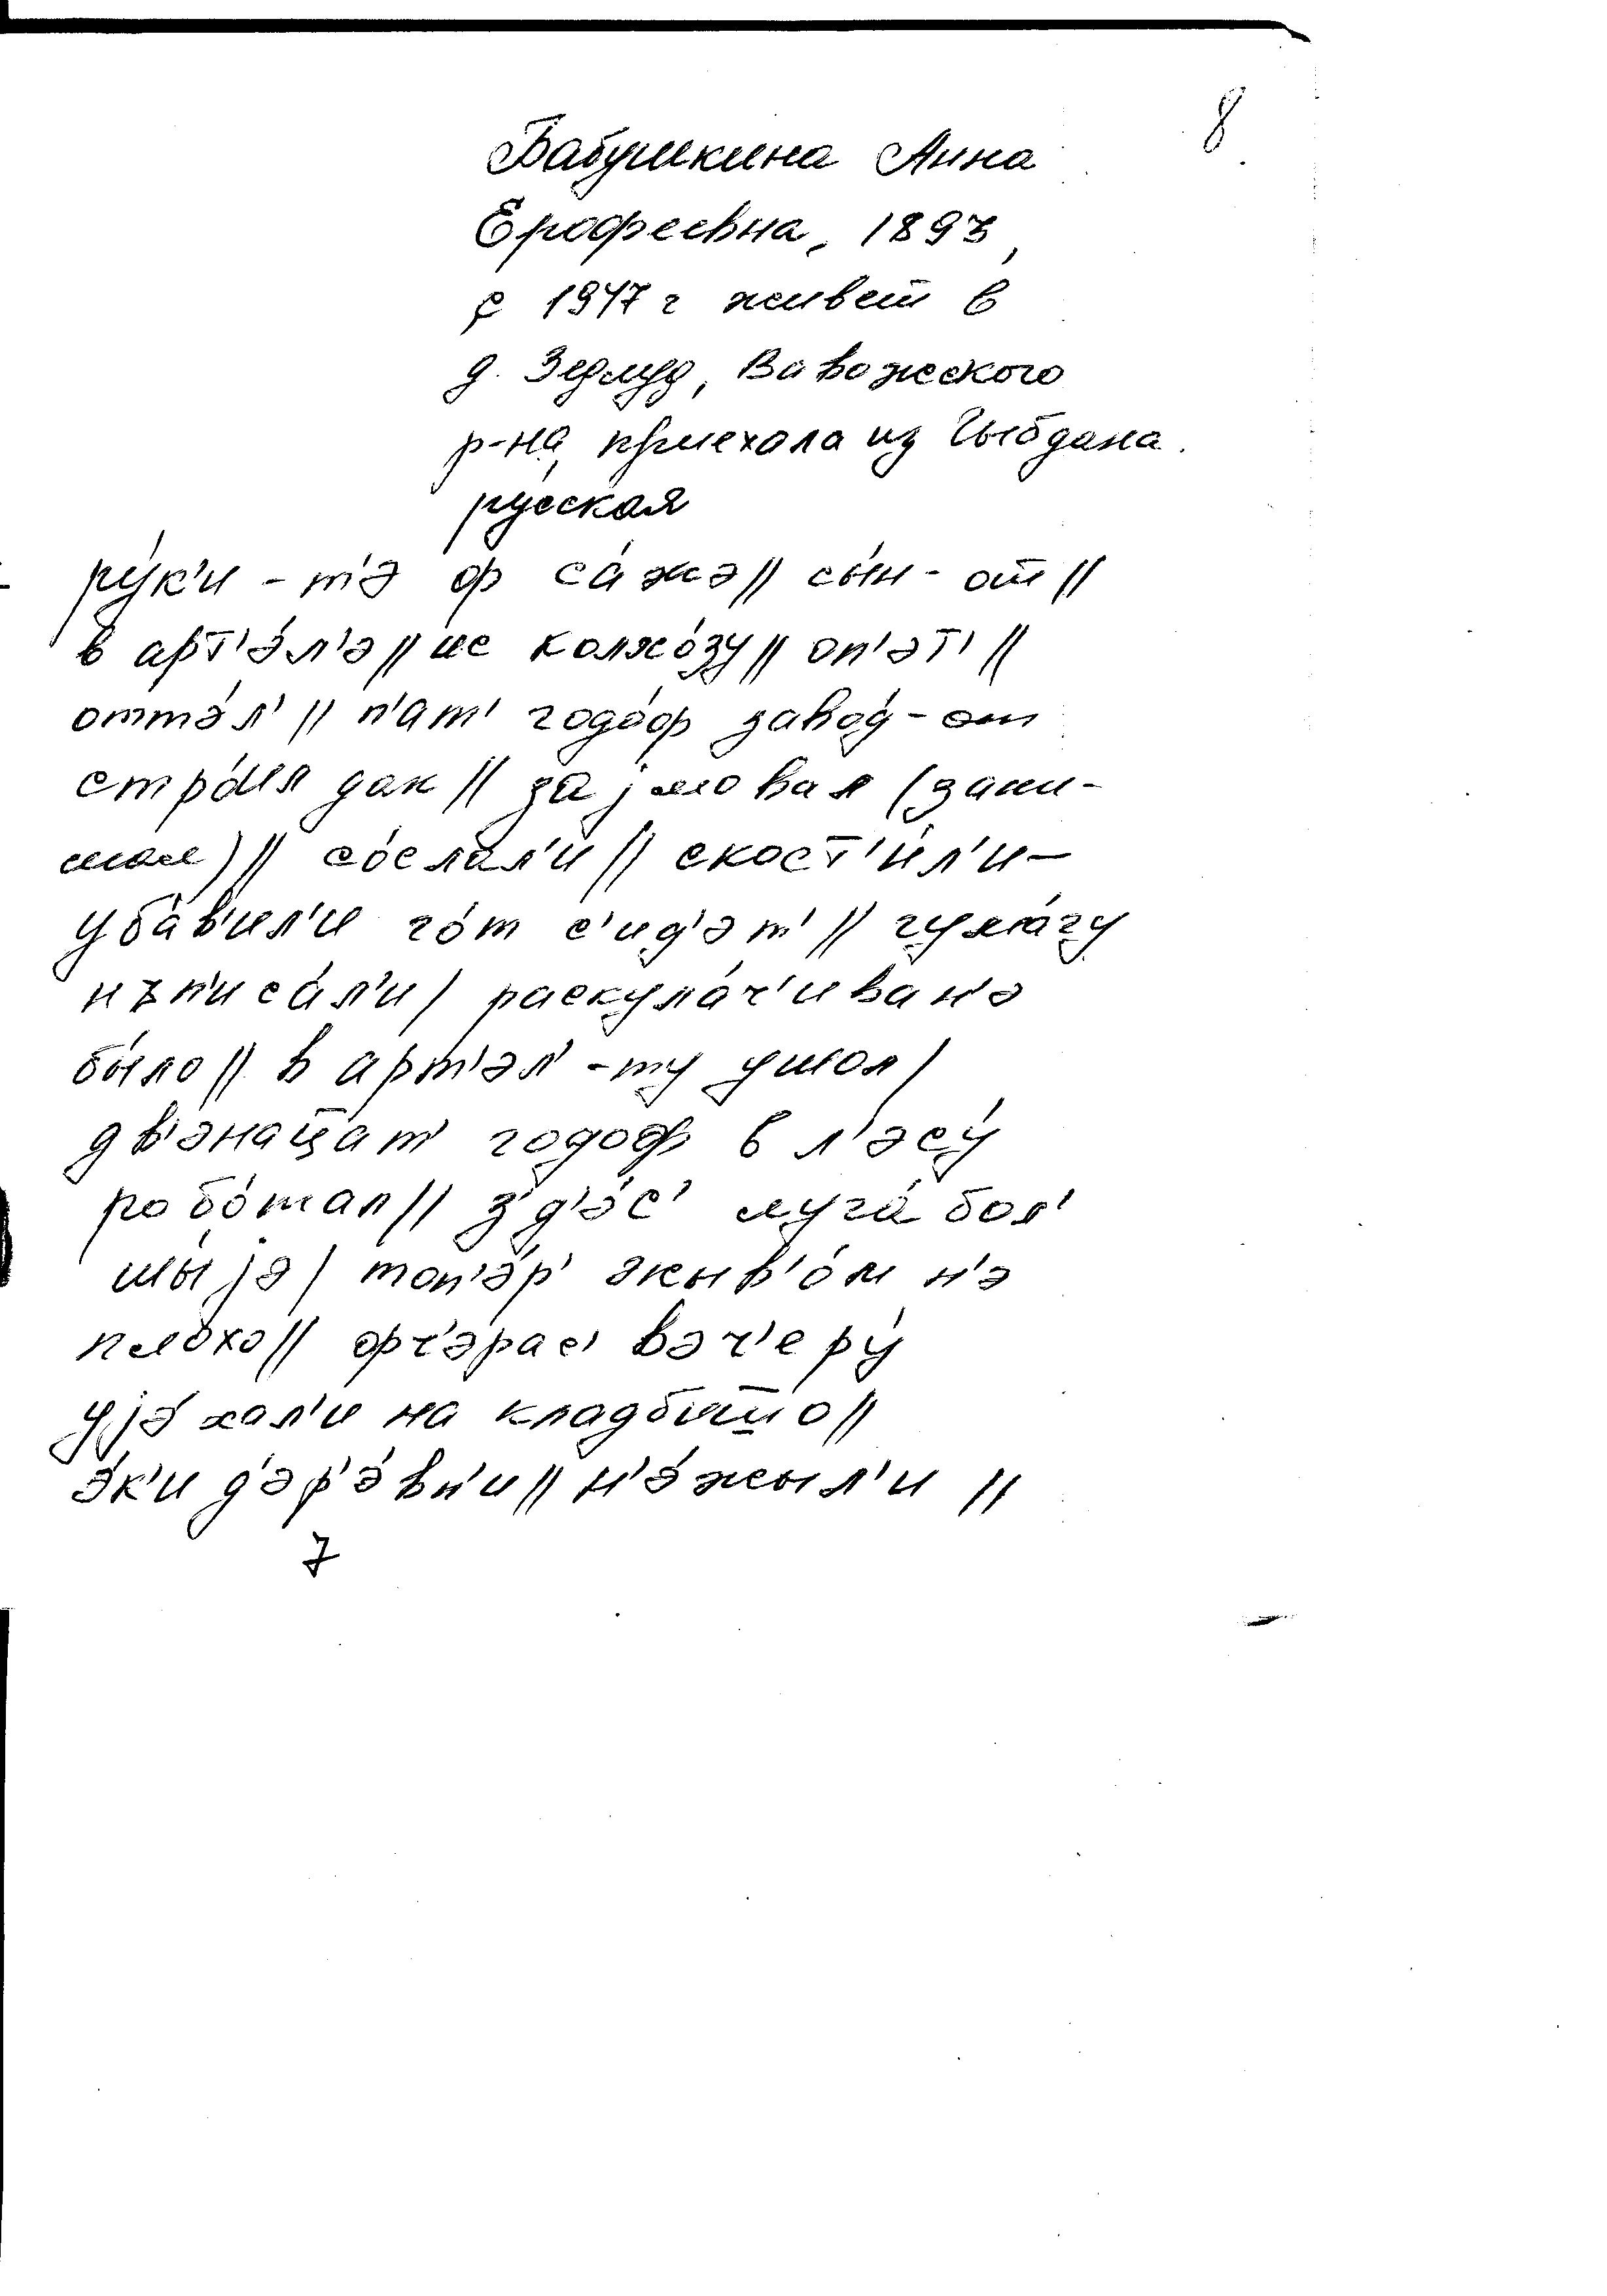 8
Бабушкина Анна
Ерофеевна, 1893,
с 1947 г живет в
д. Зедмуд, Вавожского
р-на, приехала из Чыбдана.
русская
ру́к'и - т'э ф са́жэ // сы́н - от //
в арт'э́л'э // ис колхо́зу // оп'э́т' //
оттэ́л' // п'ат' годо́ф заво́д - от
стро́ил дак // за́јмовал (зани-
мал) // со́слал'и // скост'и́л'и -
уба́в'ил'и го́т с'ид'эт' // гума́гу
нъп'иса́л'и / раскула́ч'иван'э
бы́ло // в арт'эл' - ту ушол /
дв'эна́цат' годоф в л'эсу́
робо́тал // з'д'э́с' луга́ бол'
шы́јэ / топ'э́р' жыв'о́м н'э
пло́хо // фч'эрас' вэч'еру́
ујэ́хал'и на кладби́шшо //
э́к'и д'эр'э́вн'и // н'э́жыл'и //
7